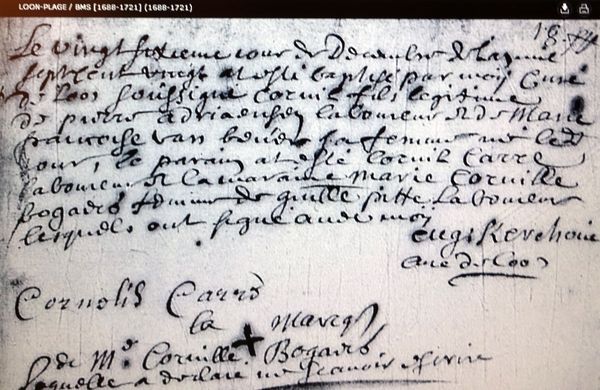 LOON-PLAGE / BMS [1688-1721] (1688-1721)
Le vingt sixieme iour de Decembre de lannee
sept cent vingt at esté baptisé par moij Curé
de Loon soussigné Cornil fils legitime
de pierre adriaensen laboureur et de Marie
francoise van sa femme né le
iour, le parain at esté Cornil Carre
laboureur et la maraine Marie Cornille
Bogaers femme de guille pitte laboureur
lesquels ont signé avec moij
curé de Loon
Cornelis Carre
la Marcq
de M Cornille Bogaers
laquelle a declaré ne scavoir escrire